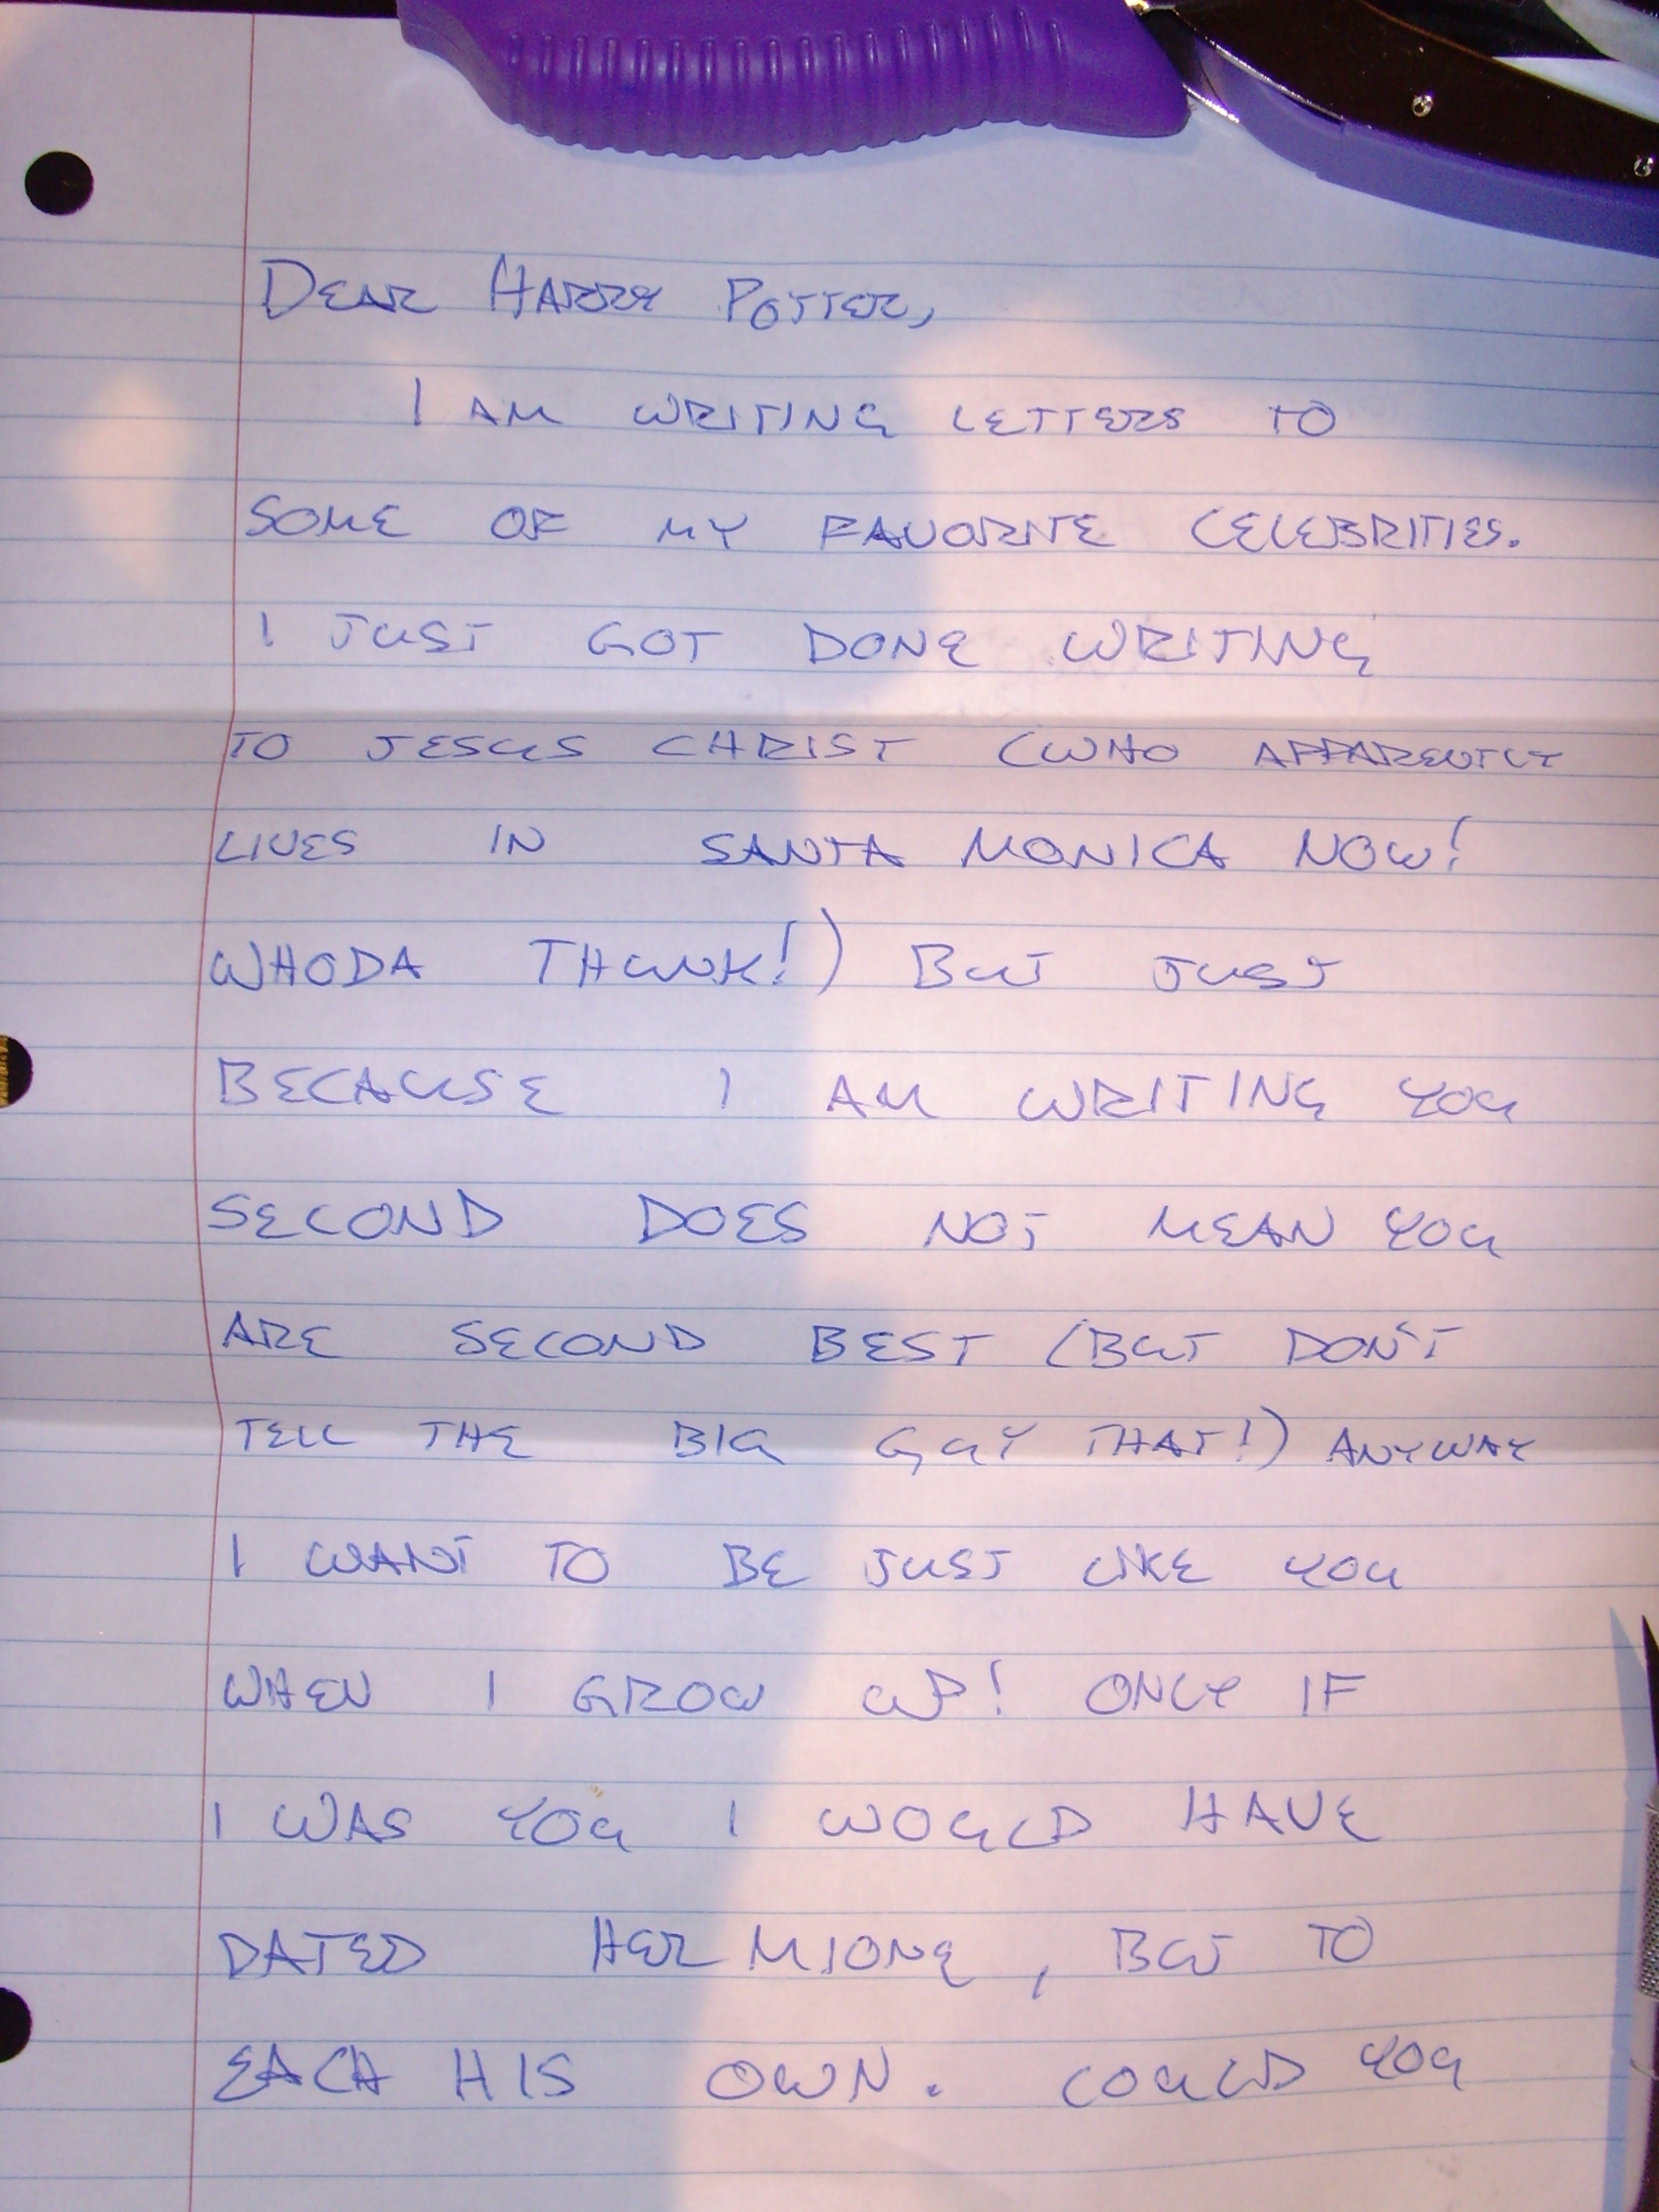 DEAR HARRY POTTER,
I AM WRITING LETTERS TO
SOME OF MY FAVORITE CELEBRITIES.
I JUST GOT DONE WRITING
TO JESUS CHRIST (WHO APPARENTLY
LIVES IN SANTA MONICA NOW!
WHODA THUNK!) BUT JUST
BECAUSE I AM WRITING YOU
SECOND DOES NOT MEAN YOU
ARE SECOND BEST (BUT DON'T
TELL THE BIG GUY THAT!) ANYWAY
I WANT TO BE JUST LIKE YOU
WHEN I GROW UP! ONLY IF
I WAS YOU I WOULD HAVE
DATED HERMIONE, BUT TO
EACH HIS OWN. COULD YOU